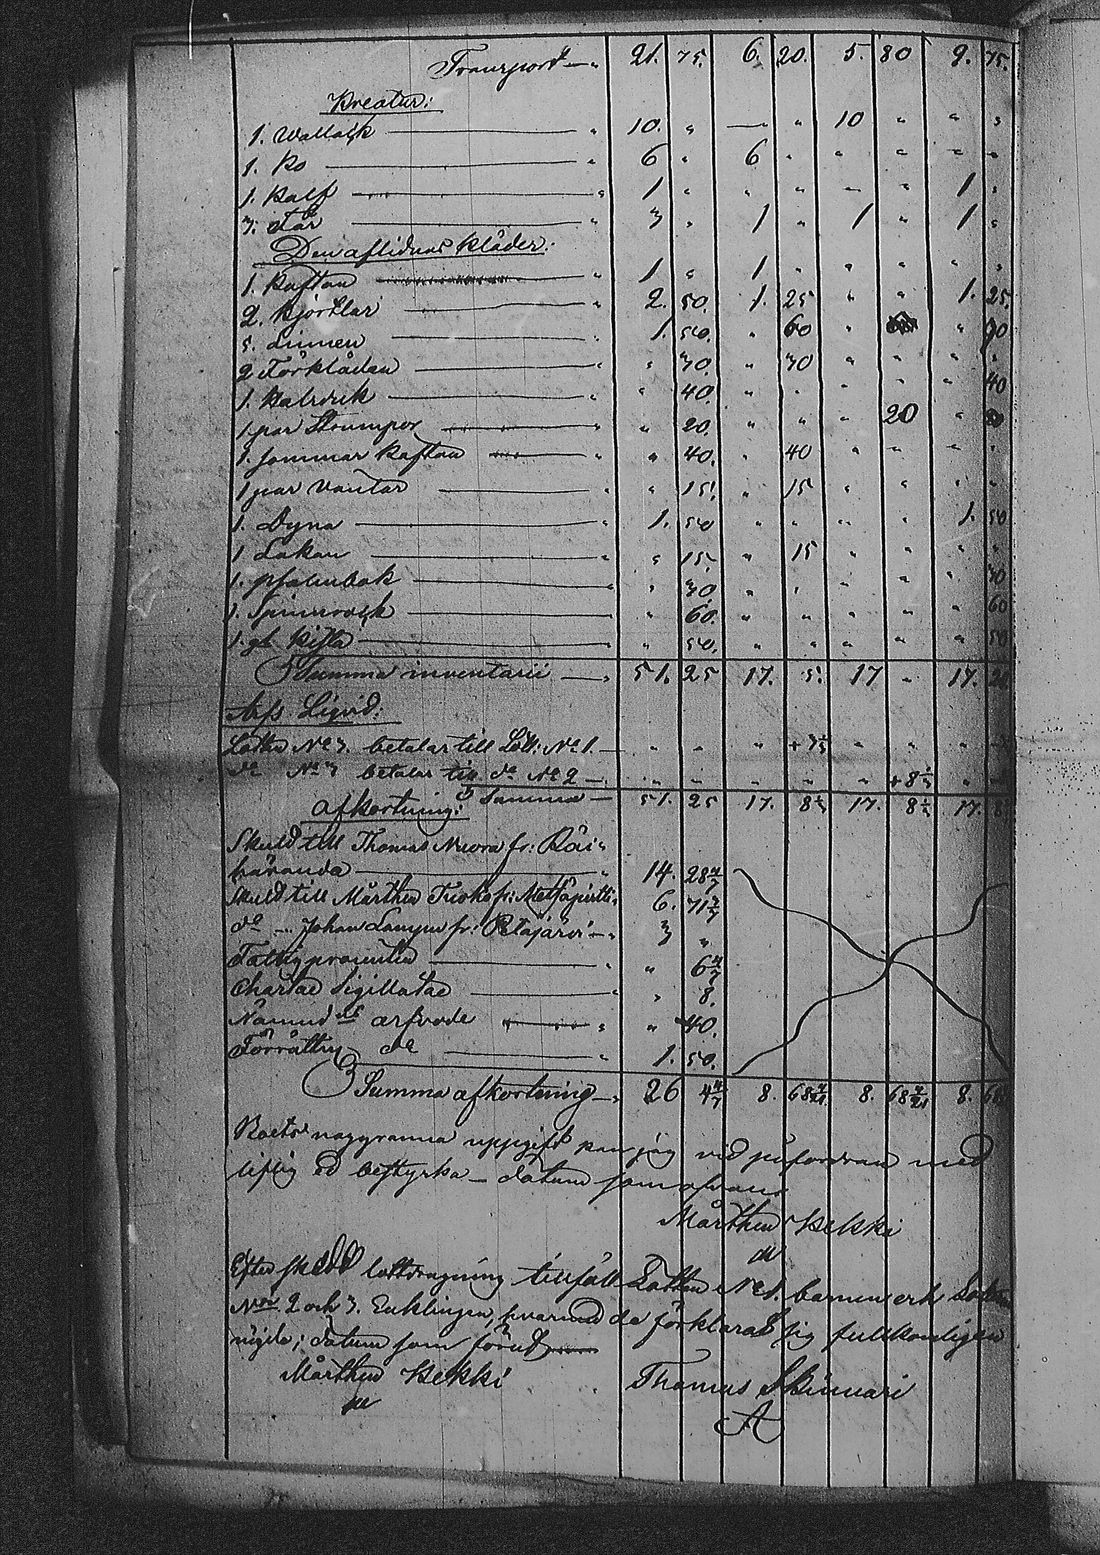 Transport — „ 21. 75. 6. 20. 5. 80 9. 75.
Kreatur:
1. Wallack — „ 10. „ — „ 10 „ „ „
1. Ko — „ 6 „ 6 „ „ „ „ „
1. Kalf — „ 1 „ „ „ „ „ 1 „
3. Får — „ 3 „ 1 „ 1 „ 1 „
Den aflidnas kläder:
1. Kaftan — „ 1 „ 1 „ „ „ „ „
2. Kjortlar — „ 2. 50. 1. 25 „ „ 1. 25
5. Linnen — „ 1. 50. „ 60 „ „ 90
2 Förkläden — „ „ 30. „ 30 „ „ „ „
1. Halsduk — „ „ 40. „ „ „ „ „ 40
1 par Strumpor — „ „ 20. „ „ „ 20 „
1. sommar Kaftan — „ „ 40. „ 40 „ „ „ „
1 par Vantar — „ „ 15. „ 15 „ „ „ „
1. Dyna — „ 1. 50 „ „ „ „ 1. 50
1 Lakan — „ „ 15. „ 15 „ „ „ „
1. psalmbok — „ „ 30. „ „ „ „ „ 30
1. Spinnrock — „ „ 60. „ „ „ „ „ 60
1. gl. Kista — „ „ 50. „ „ „ „ „ 50
Summa inventarii — „ 51. 25 17. 5. 17 „ 17. 20
Arfs Liqvid:
Lotten No 3. betalar till Lott. No 1. — „ „ „ + 3⅓ „ „ „
do No 3 betalar till do No 2 — „ „ „ „ „ + 8⅓ „
Summa — 51. 25 17. 8⅓ 17. 8⅓ 17. 8⅓
afkortning:
Skuld till Thomas Niwra fr: Räi-
häranda — „ 14. 28 4/7
Skuld till Mårthen fr: Metsäpirtti „ 6. 71 3/7
do — Johan fr: Petäjärvi — „ 3 „
Fattigprocenten — „ „ 6 4/7
Chartae Sigillatae — „ „ 8.
Nämnd arfvode — „ „ 40.
Förrättn do — „ 1. 50.
Summa afkortning — „ 26 4 4/7 8. 68 4/21 8. 68 4/21 8. 68
Boets noggranna uppgift kan jag vid påfordran med
liflig ed bestyrka — datum som ofvan
Mårthen Kekki
Efter skedd lottdragning tillföll Lotten No 1. barnen och Lotten
No 2 och 3. Enklingen, hvarmed de förklarat sig fullkomligen
nöjda; datum som förut
Mårthen Kekki Thomas Skinnari